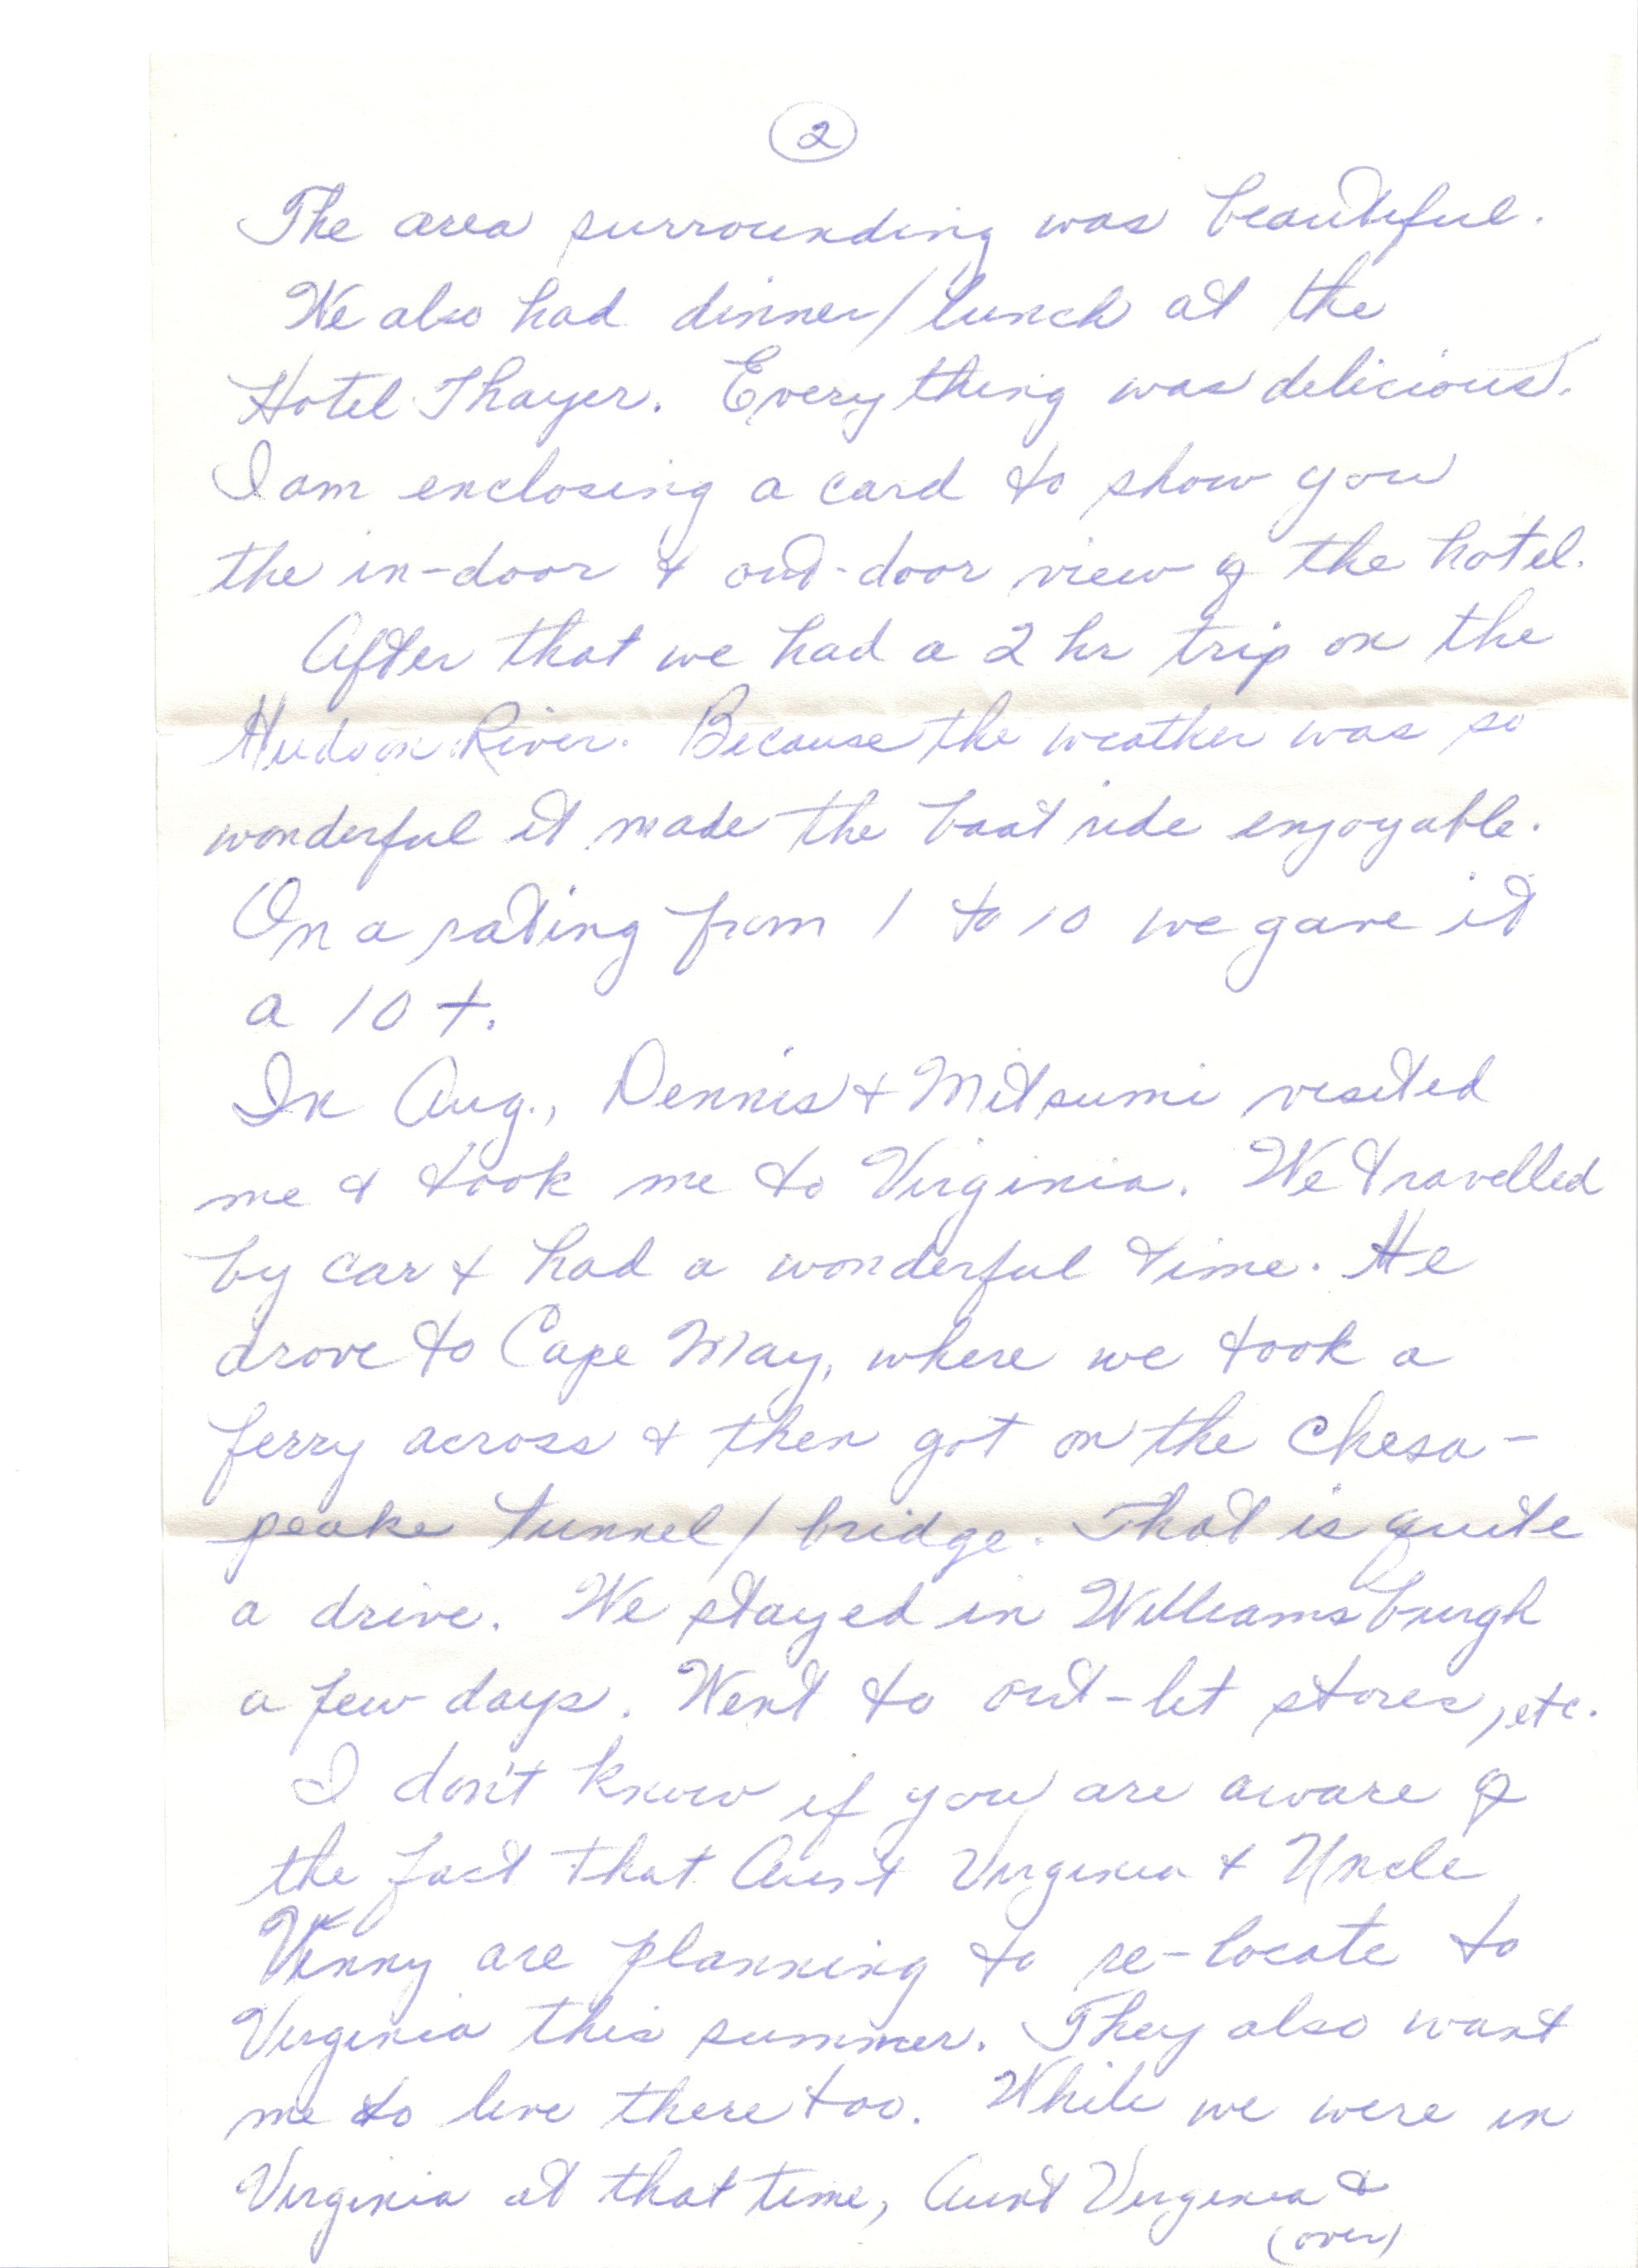 2
The area surrounding was beautiful.
We also had dinner/lunch at the
Hotel Thayer. Everything was delicious.
I am enclosing a card to show you
the in-door & out-door view of the hotel.
After that we had a 2 hr trip on the
Hudson River. Because the weather was so
wonderful it made the boat ride enjoyable.
On a rating from 1 to 10 we gave it
a 10 +.
In Aug., Dennis & Mitsumi visited
me & took me to Virginia. We travelled
by car & had a wonderful time. He
drove to Cape May, where we took a
ferry across & then got on the Chesa-
peake tunnel/bridge. That is quite
a drive. We stayed in Williamsburgh
a few days. Went to out-let stores, etc.
I don't know if you are aware of
the fact that Aunt Virginia & Uncle
Vinny are planning to re-locate to
Virginia this summer. They also want
me to live there too. While we were in
Virginia at that time, Aunt Virginia &
(over)